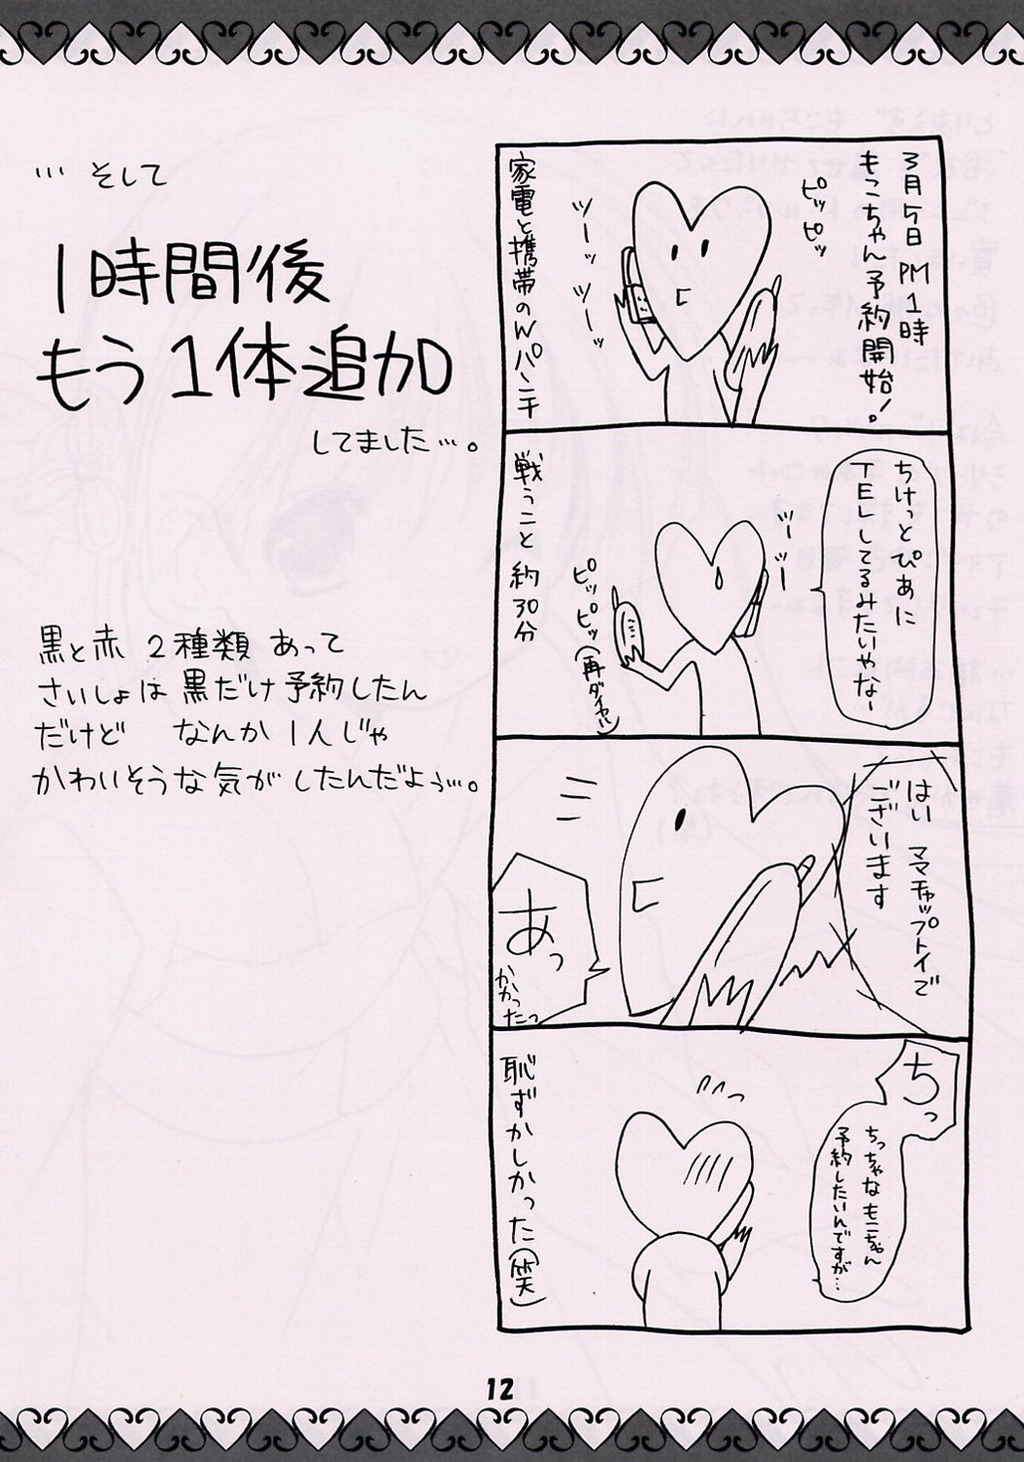 3月5日 PM1時
もこちゃん予約開始！。
ピッピッ
ツーッッ ツーッッ
家電と携帯のWパンチ
ちけっとぴあに
TELしてるみたいやなー
ツーッツー
ピッピッ（再ダイヤル）
戦うこと 約30分
はい ママチャップトイで
ございます
あっ
かかったっ
ちっ
ちっちゃな もこちゃん
予約したいんですが…
恥ずかしかった（笑）
… そして
1時間後
もう1体追加
してました…。
黒と赤 2種類 あって
さいしょは 黒だけ 予約したん
だけど なんか 1人じゃ
かわいそうな気が したんだよぅ…。
12